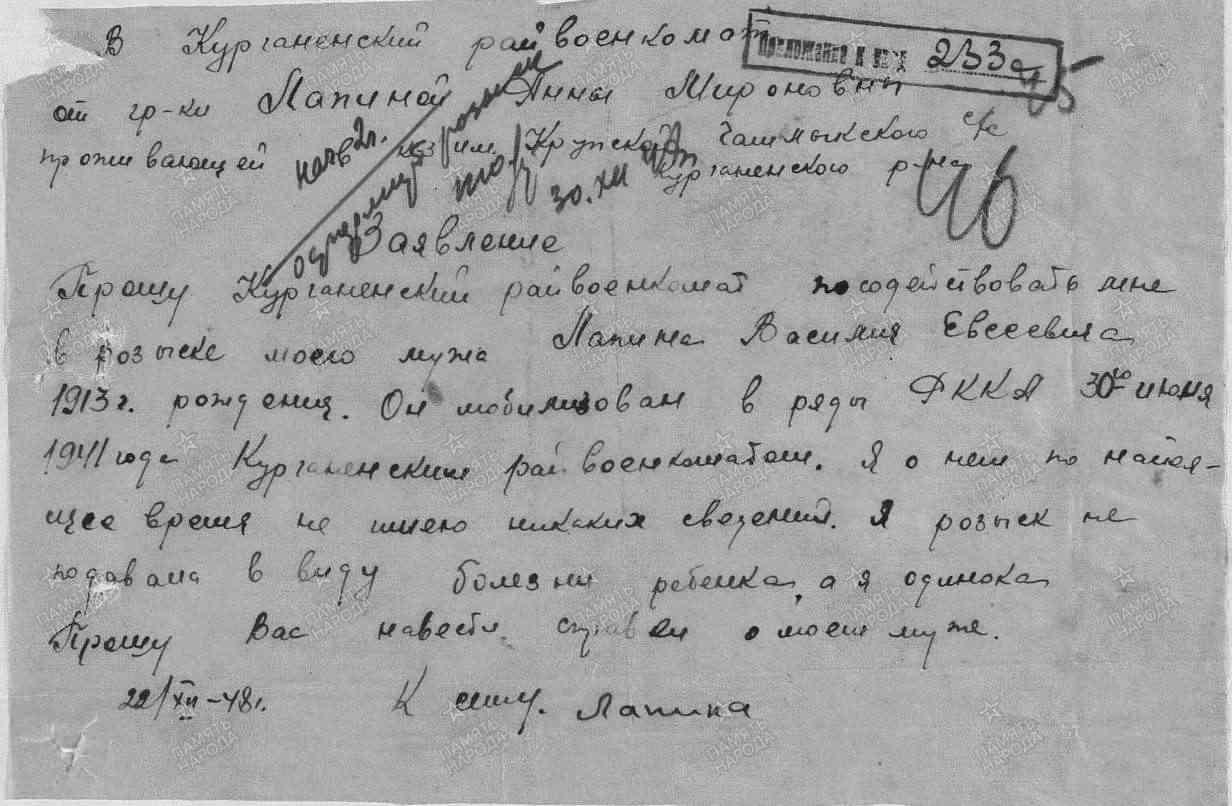 В Курганенский райвоенкомат
Приложение к вход 233с
от гр-ки Лапиной Анны Мироновны
проживающей к-з им. Крупской с/с
Курганенского р-на
30.XII
46
Заявление
Прошу Курганенский райвоенкомат посодействовать мне
в розыске моего мужа Лапина Василия Евсеевича
1913 г. рождения. Он мобилизован в ряды РККА 30го июня
1941 года Курганенским райвоенкоматом. Я о нем по настоя-
щее время не имею никаких сведений. Я розыск не
подавала в виду болезни ребенка, а я одинока
Прошу Вас навести справки о моем муже.
22/XII-48г. К сему. Лапина
ПАМЯТЬ НАРОДА